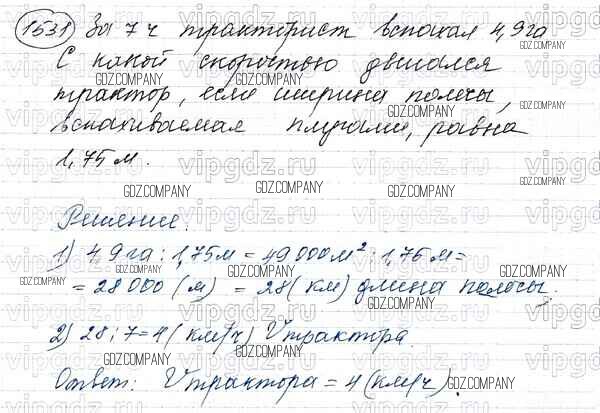 1531 За 7 ч тракторист вспахал 4,9га
С какой скоростью двигался
трактор, если ширина полосы,
вспахиваемая плугами, равна
1,75 м.
Решение.
1) 4,9га : 1,75м = 49000м² : 1,75м =
= 28000 (м) = 28 (км) длина полосы.
2) 28 : 7 = 4 (км/ч) Vтрактора.
Ответ: Vтрактора = 4 (км/ч).
GDZ.COMPANY
vipgdz.ru